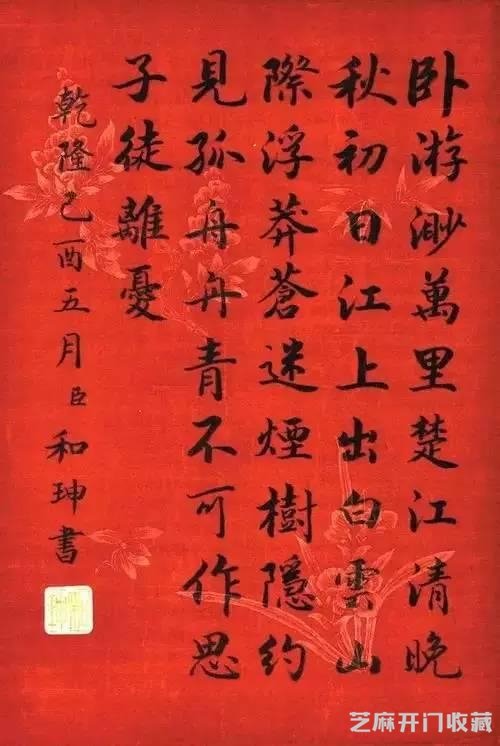 卧游渺萬里楚江清晚
秋初日江上出白雲山
際浮莽蒼迷煙樹隱約
見孤舟舟青不可作思
子徒離憂
乾隆己酉五月臣和珅書
芝麻开门收藏